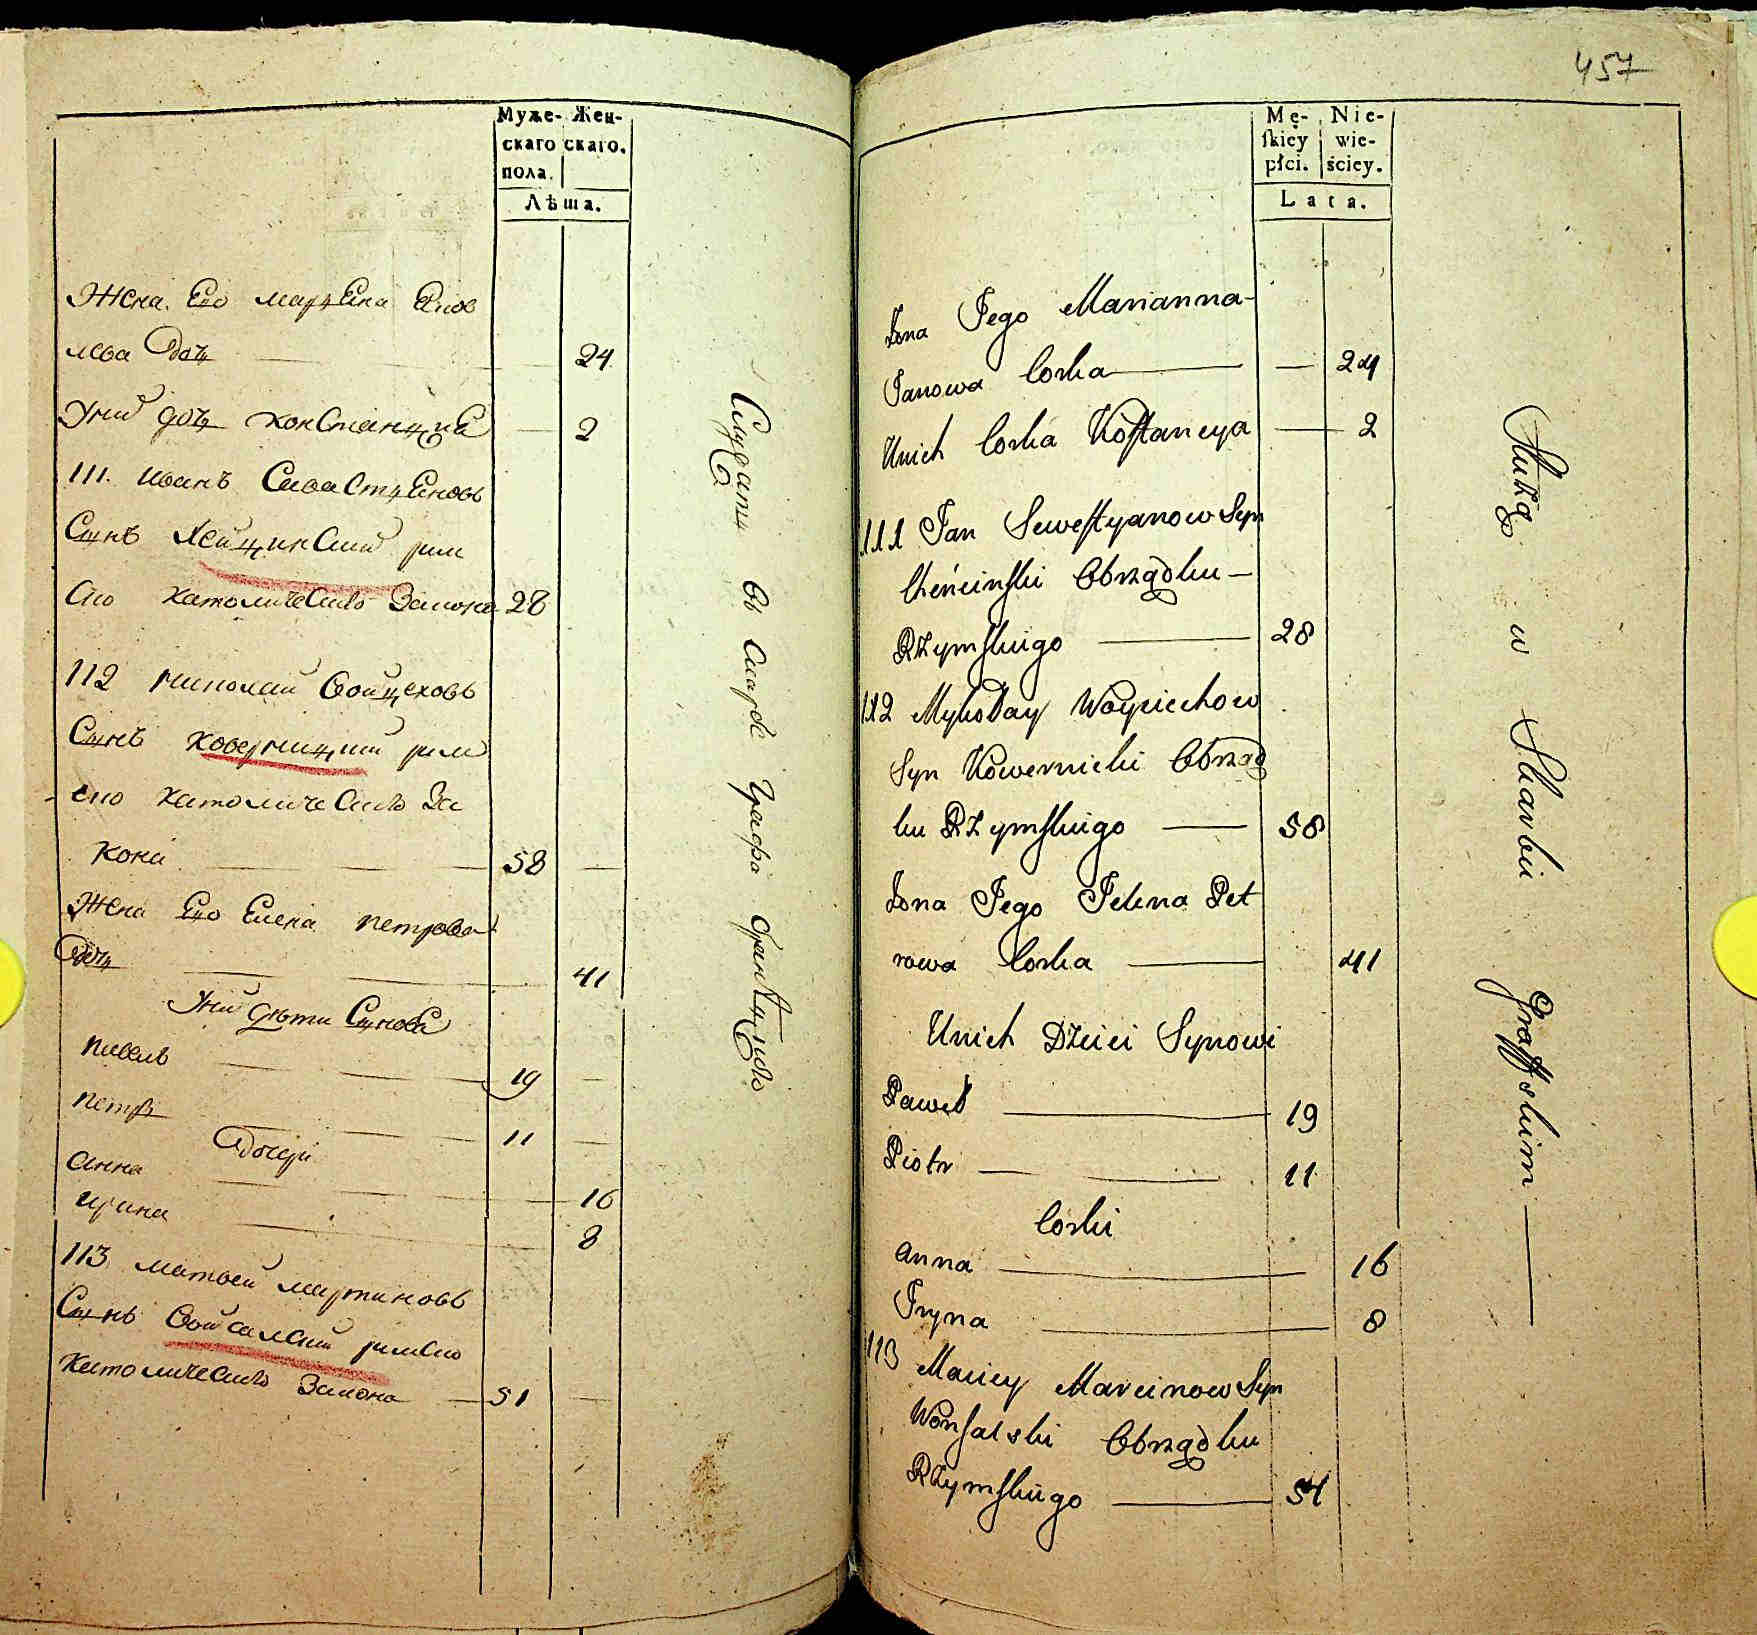 Муже- Жен-
скаго скаго.
пола.
Лѣта.
Жена Его марцеяна Яное
лева дочь 24
Униѣ дочь констанцыя 2
111. иванъ Севестцяновъ
Сынъ Хенцинский рим
ско католическаго Закона 28
112 миколай войцеховъ
Сынъ коверницкий рим
ско католическаго За
кона 58
Жена Его Елена петрова
дочь 41
Униѣ дѣти Сыновья
павелъ 19
петръ 11
дочери
анна 16
ирина 8
113. матвей мартиновъ
Сынъ Войсалский римско
католическаго Закона 51
Служатъ въ скарбе графа
457
Mę- Nie-
ſkiey wie-
płci. ściey.
Lata.
Żona Jego Marianna
Janowa Corka — 24
Unich Corka Koſtancya — 2
111 Jan Seweſtyanow Syn
Chencinſki Obrządku
Rzymſkiigo 28
112 Mykołay Woyciechow
Syn Kowernicki Obrząd
ku Rzymſkiigo 58
Żona Jego Jelena Pet
rowa Corka 41
Unich Dzieci Synowi
Paweł 19
Piotr 11
Corki
Anna 16
Iryna 8
113 Maciey Marcinow Syn
Wonsalski Obrządku
Rzymſkiigo 51
Służą w Skarbii Graffskim